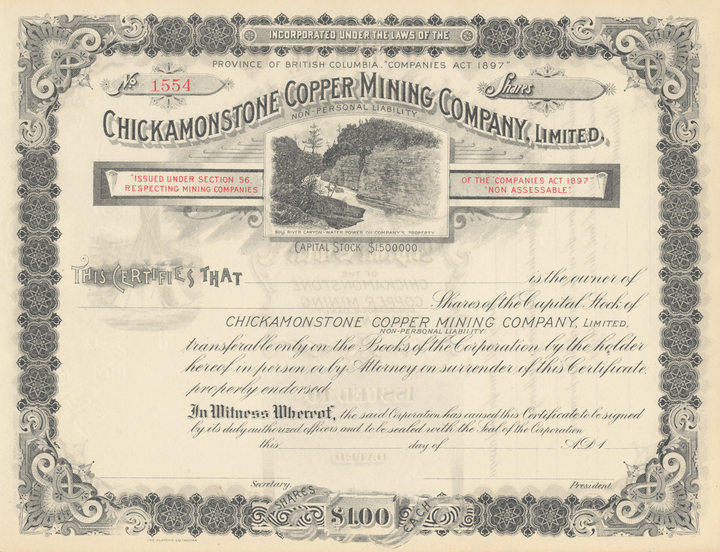 INCORPORATED UNDER THE LAWS OF THE
PROVINCE OF BRITISH COLUMBIA. "COMPANIES ACT 1897"
No. 1554
Shares
CHICKAMONSTONE COPPER MINING COMPANY, LIMITED.
NON-PERSONAL LIABILITY
"ISSUED UNDER SECTION 56
RESPECTING MINING COMPANIES
OF THE "COMPANIES ACT 1897"
"NON ASSESSABLE".
BULL RIVER CANYON-WATER POWER ON COMPANY'S PROPERTY
CAPITAL STOCK $1500000
THIS CERTIFIES THAT is the owner of
Shares of the Capital Stock of
CHICKAMONSTONE COPPER MINING COMPANY, LIMITED,
NON-PERSONAL LIABILITY
transferable only on the Books of the Corporation by the holder
hereof in person or by Attorney on surrender of this Certificate
properly endorsed.
In Witness Whereof, the said Corporation has caused this Certificate to be signed
by its duly authorized officers and to be sealed with the Seal of the Corporation
this day of A.D. 1
Secretary. President.
SHARES $1.00 EACH